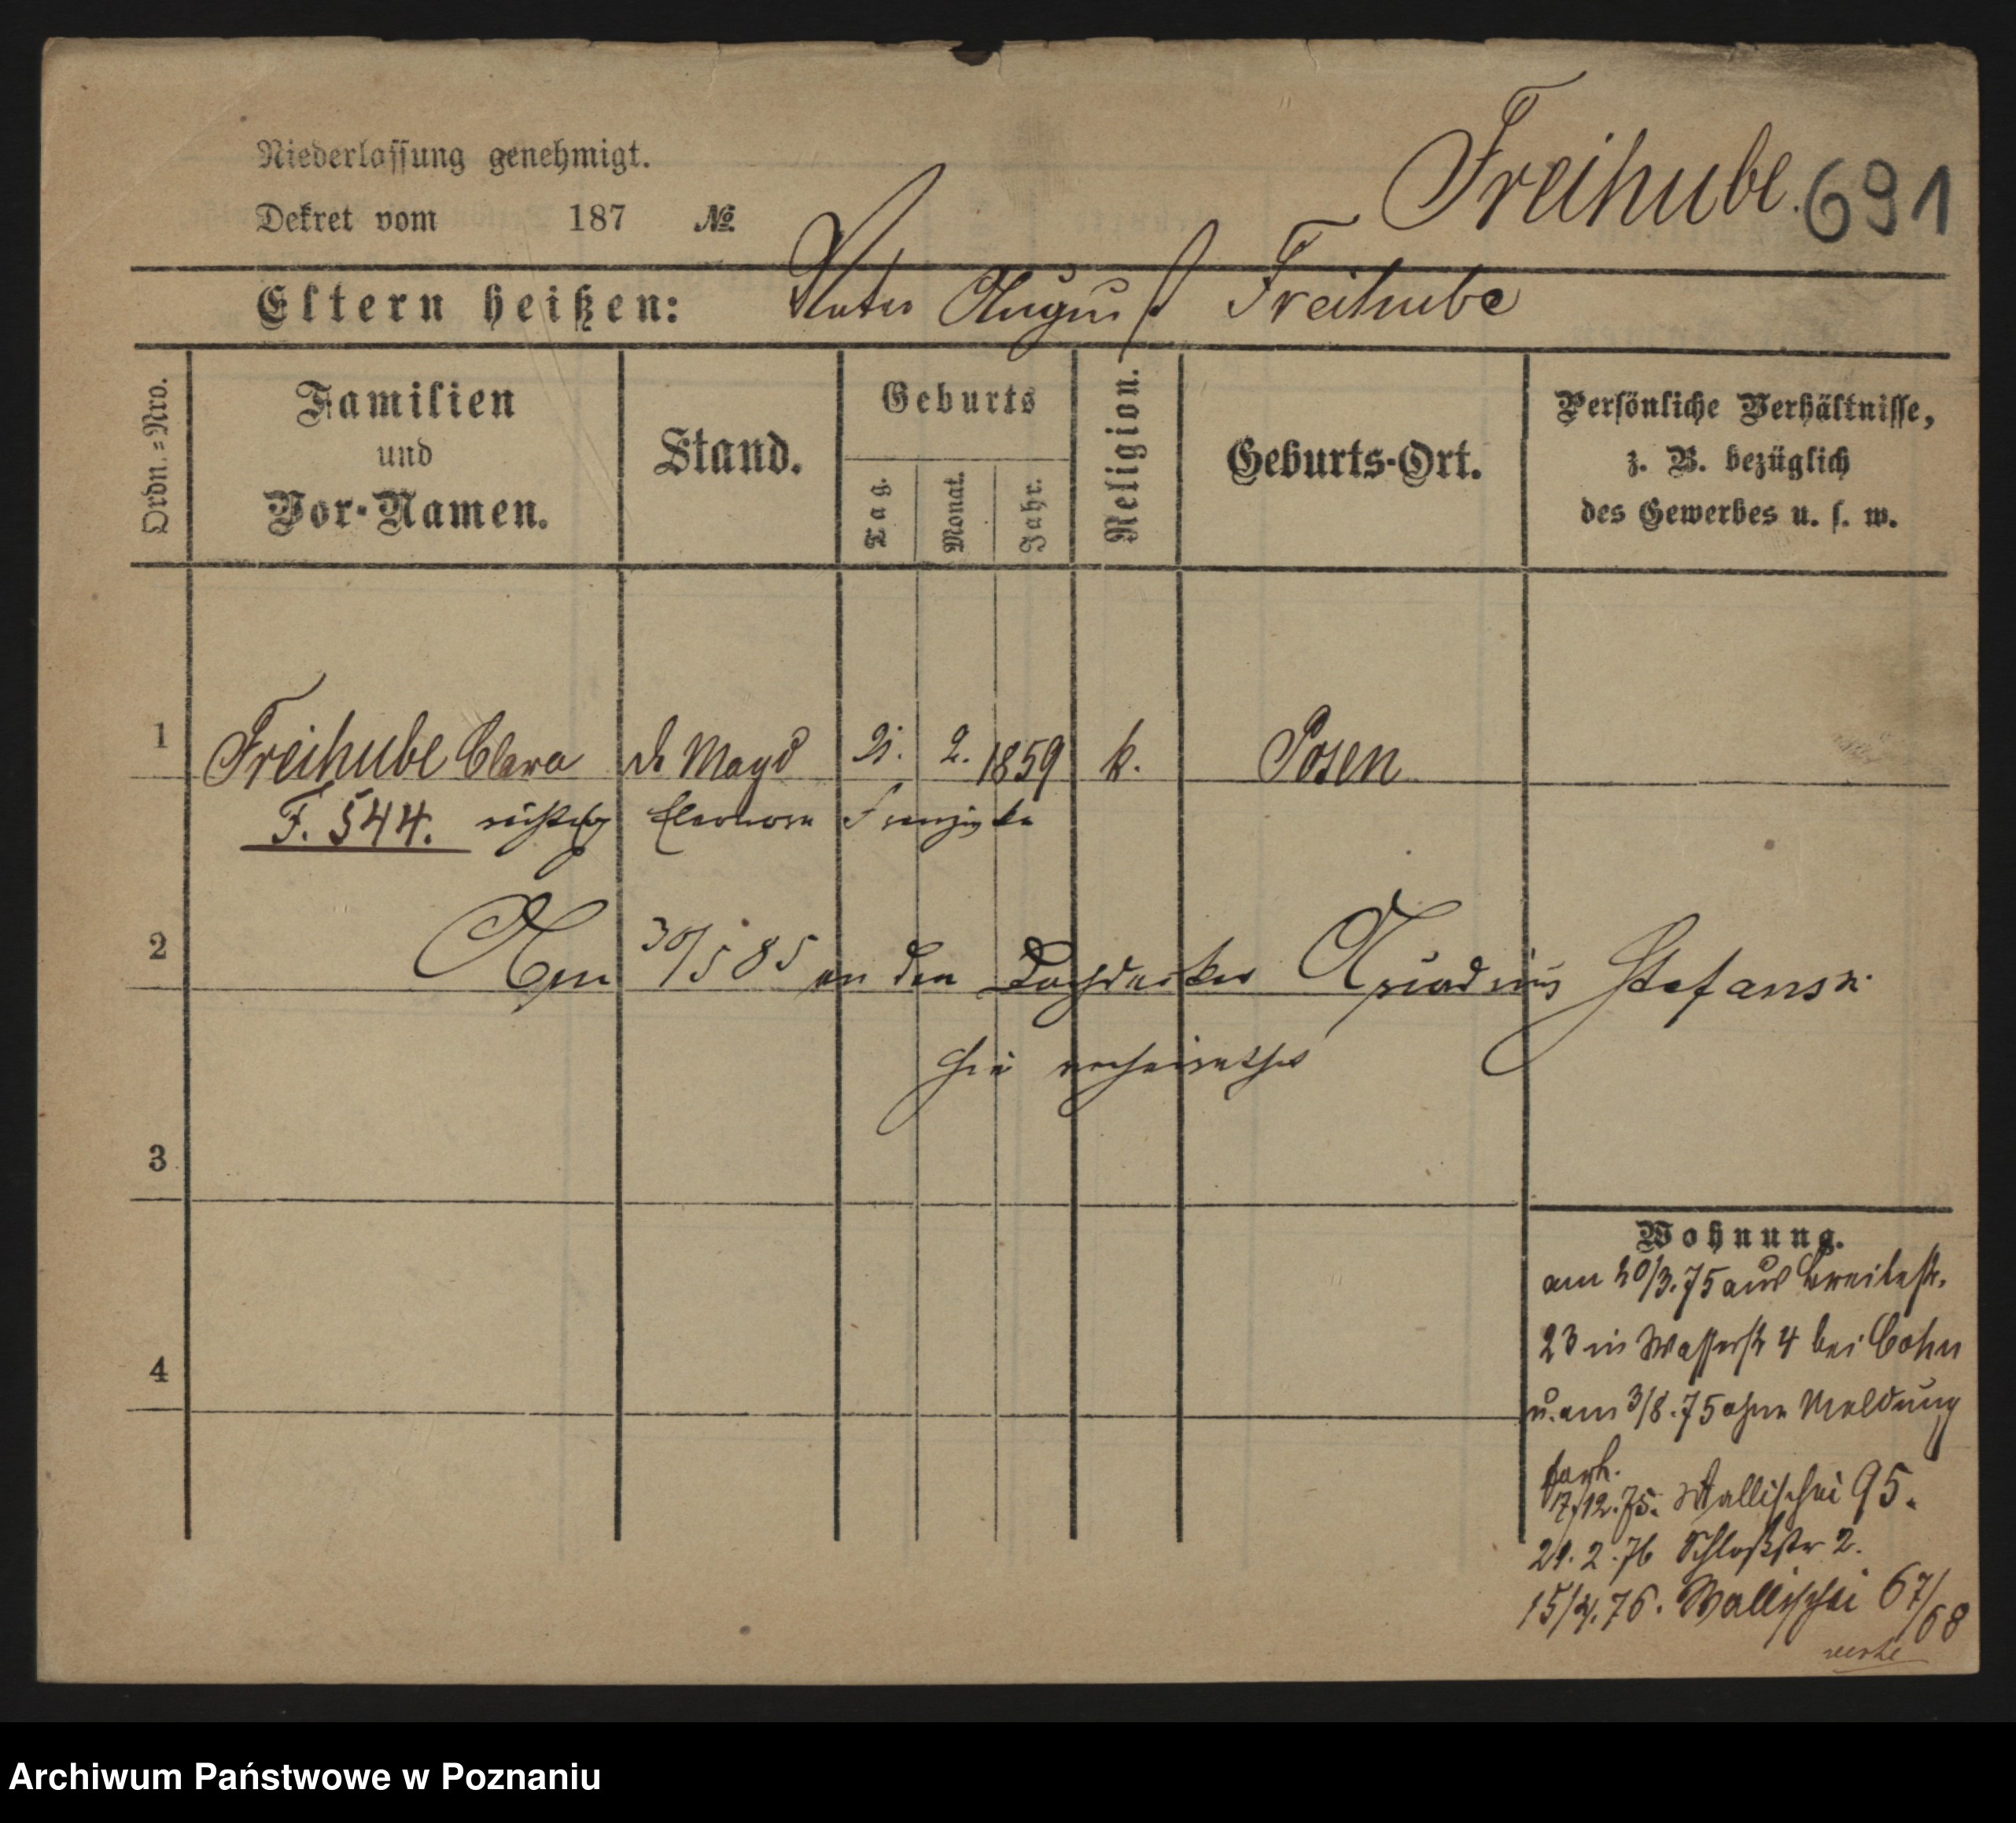 Niederlassung genehmigt.
Freihube. 691
Dekret vom 187 №
Eltern heißen: Vater August Freihube
Ordn.=Nro.
Familien
und
Vor-Namen.
Stand.
Geburts
Tag.
Monat.
Jahr.
Religion.
Geburts-Ort.
Persönliche Verhältnisse,
z. B. bezüglich
des Gewerbes u. s. w.
1 Freihube Clara Magd 2. 1859 k. Posen
F. 544. richtig Eleonora Franziska
2 Am 30/5 85 an den Dachdecker Stefanski
hie verheirathet
3
Wohnung.
am 20/3.75 aus Breitestr.
23 in Wasserstr 4 bei Cohn
4
u. am 3/8.75 ohne Meldung
17/12.75. Wallischei 95.
29.2.76 Schloßstr 2.
15/4.76. Wallischei 67/68
Archiwum Państwowe w Poznaniu